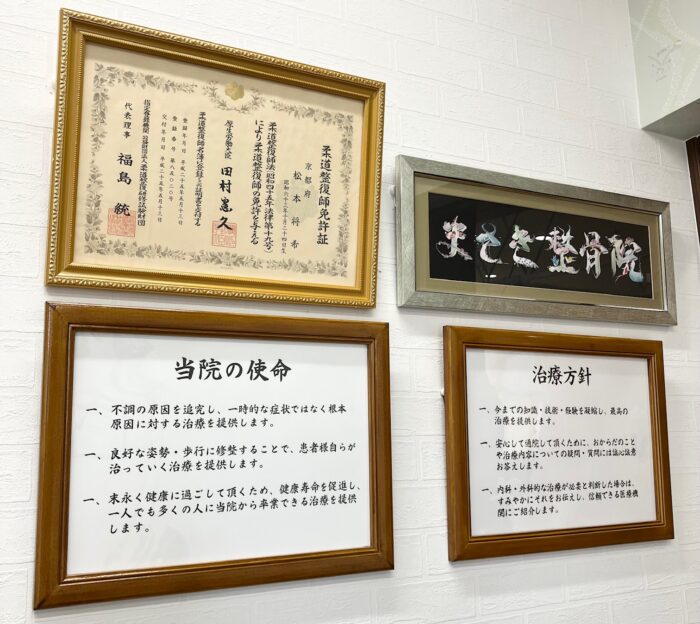 柔道整復師免許証
京都府
松本将希
昭和六十三年十月二十四日生
柔道整復師法(昭和四十五年法律第十九号)
により柔道整復師の免許を与える
厚生労働大臣 田村憲久
柔道整復師名簿に登録したことを証明する
登録年月日 平成二十五年五月十三日
交付年月日 平成二十五年五月十三日
指定登録機関 公益財団法人柔道整復研修試験財団
代表理事 福島統
まさき整骨院
当院の使命
一、不調の原因を追究し、一時的な症状ではなく根本
原因に対する治療を提供します。
一、良好な姿勢・歩行に修整することで、患者様自らが
治っていく治療を提供します。
一、末永く健康に過ごして頂くため、健康寿命を促進し、
一人でも多くの人に当院から卒業できる治療を提供
します。
治療方針
一、今までの知識・技術・経験を凝縮し、最高の
治療を提供します。
一、安心して通院して頂くために、おからだのこと
や治療内容についての疑問・質問には誠心誠意
お答えします。
一、内科・外科的な治療が必要と判断した場合は、
すみやかにそれをお伝えし、信頼できる医療機
関にご紹介します。